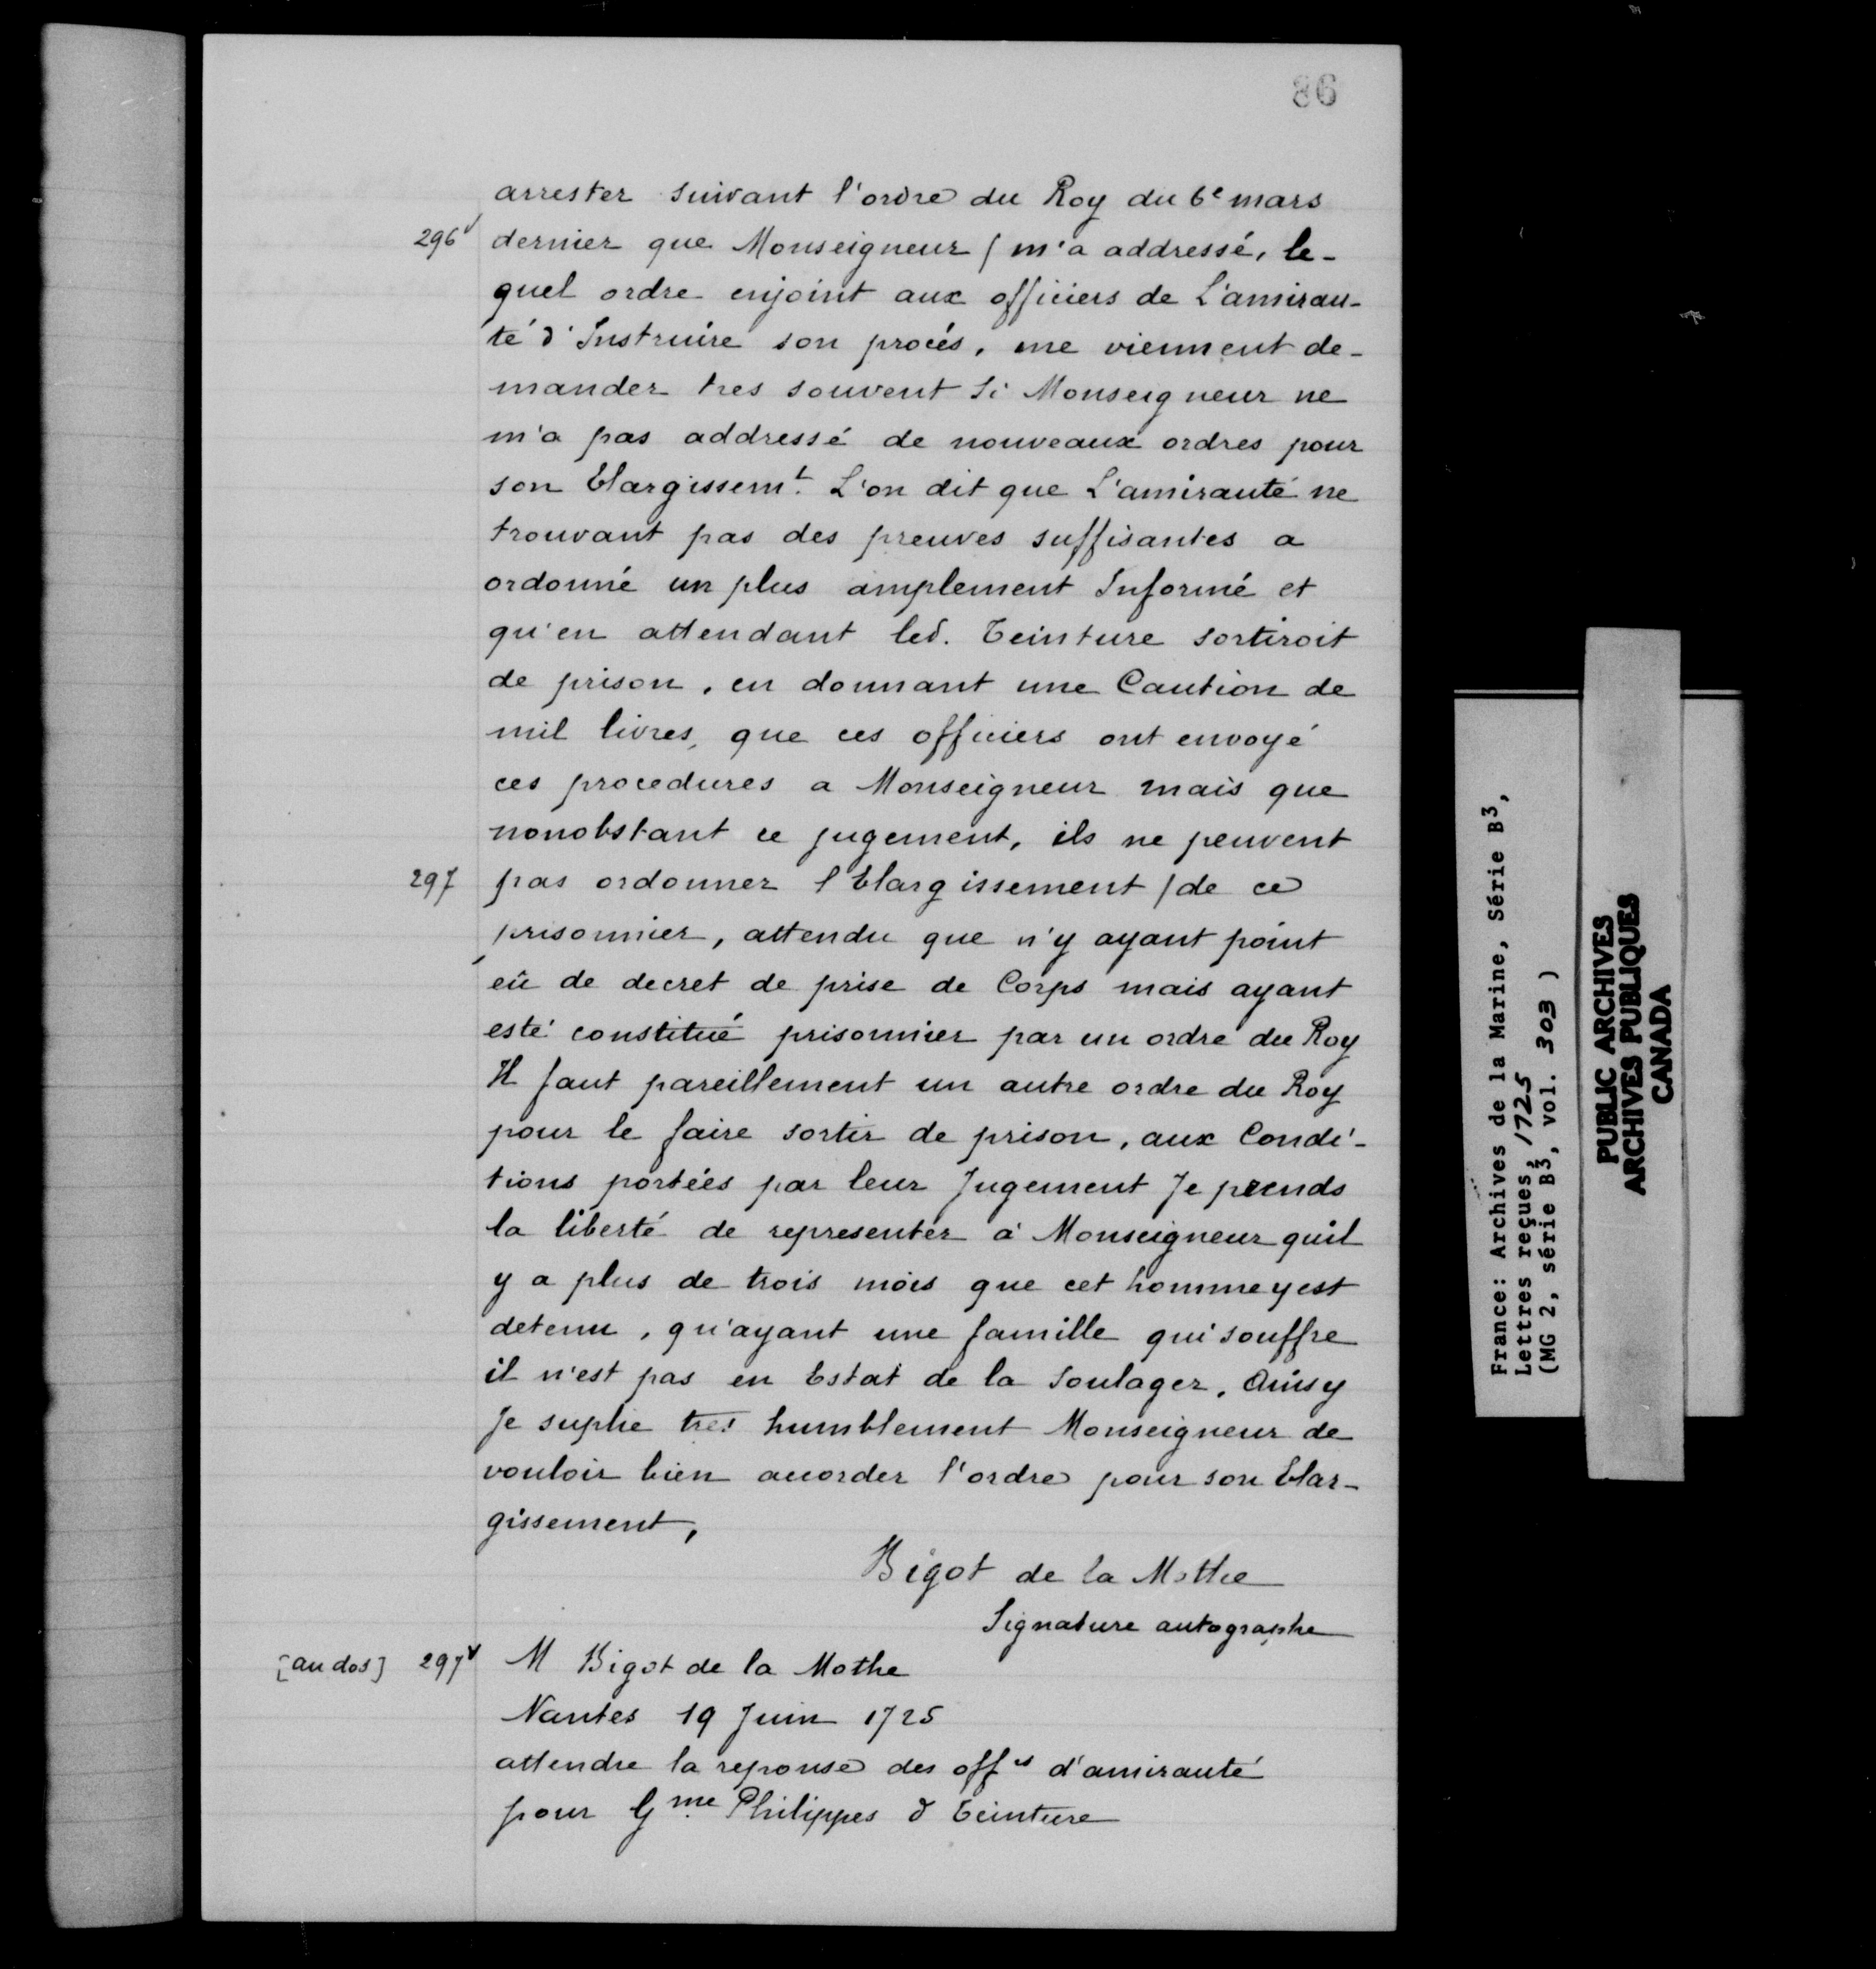 86
arrester suivant l'ordre du Roy du 6e mars
296v dernier que Monseigneur / m'a addressé, le-
quel ordre enjoint aux officiers de L'amirau-
té d'Instruire son procés, me viennent de-
mander tres souvent si Monseigneur ne
m'a pas addressé de nouveaux ordres pour
son Elargissemt. L'on dit que L'amirauté ne
trouvant pas des preuves suffisantes a
ordonné un plus amplement Informé et
qu'en attendant led. Teinture sortiroit
de prison, en donnant une Caution de
mil livres, que ces officiers ont envoyé
ces procedures a Monseigneur mais que
nonobstant ce jugement, ils ne peuvent
297 pas ordonner l'Elargissement / de ce
prisonnier, attendu que n'y ayant point
eû de decret de prise de Corps mais ayant
esté constitué prisonnier par un ordre du Roy
Il faut pareillement un autre ordre du Roy
pour le faire sortir de prison, aux Condi-
tions portées par leur Jugement Je prends
la liberté de representer à Monseigneur quil
y a plus de trois mois que cet homme y est
detenu, qu'ayant une famille qui souffre
il n'est pas en Estat de la Soulager, Ainsy
Je suplie tres humblement Monseigneur de
vouloir bien accorder l'ordre pour son Elar-
gissement,
Bigot de la Mothe
Signature autographe
[au dos] 297v M Bigot de la Mothe
Nantes 19 Juin 1725
attendre la reponse des offrs d'amirauté
pour Gme Philippes d Teinture
France: Archives de la Marine, Série B3,
Lettres reçues, 1725
(MG 2, série B3, vol. 303 )
PUBLIC ARCHIVES
ARCHIVES PUBLIQUES
CANADA